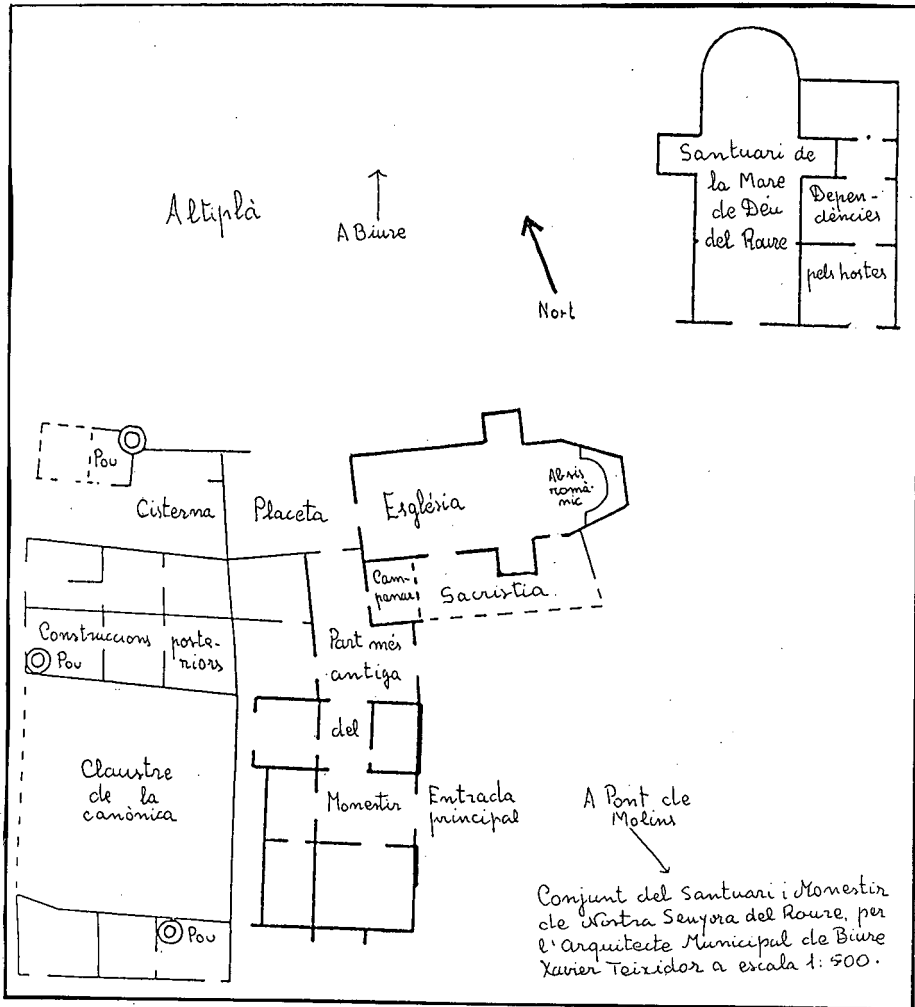 Santuari de
la Mare
de Déu
del Roure
Depen-
dències
pels hostes
Altiplà
A Biure
Nort
Pou
Cisterna
Placeta
Església
Absis
romà-
nic
Cam-
panar
Sacristia
Construccions poste-
riors
Pou
Part més
antiga
del
Monestir
Claustre
de la
canònica
Entrada
principal
A Pont de
Molins
Pou
Conjunt del Santuari i Monestir
de Nostra Senyora del Roure, per
l'Arquitecte Municipal de Biure
Xavier Teixidor a escala 1:500.